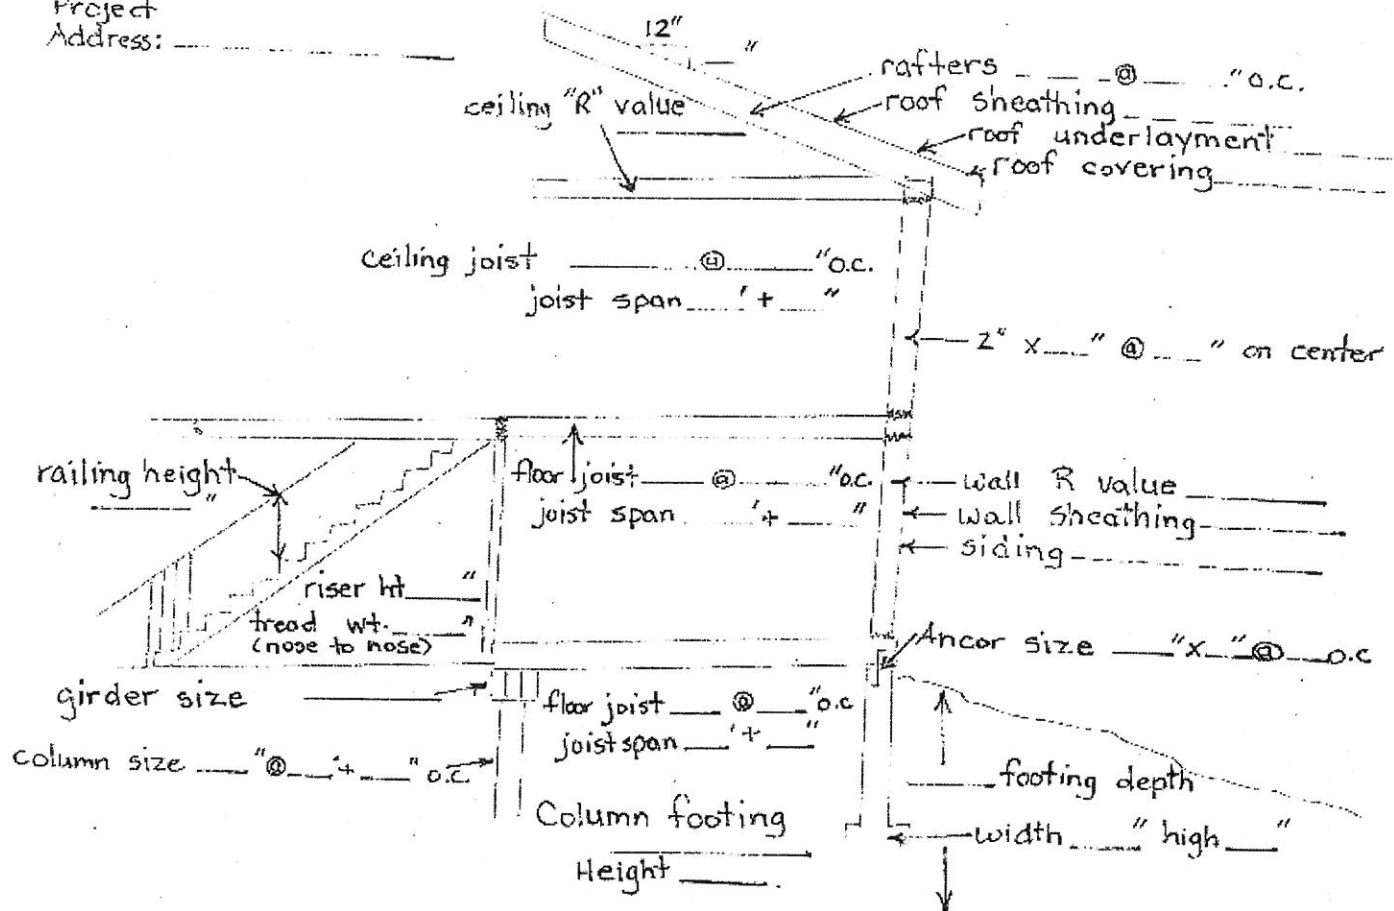 Project
Address: ___________
12"
___"
rafters ___ @ ___" o.c.
ceiling "R" value
roof sheathing ___
roof underlayment ___
roof covering ___
ceiling joist ___ @ ___ "o.c.
joist span ___ ' + ___ "
2" x ___ " @ ___ " on center
railing height
___"
floor joist ___ @ ___ "o.c.
joist span ___ ' + ___ "
wall R value ___
wall sheathing ___
siding ___
riser ht ___"
tread wt. ___"
(nose to nose)
Ancor size ___ "x ___ "@ ___ o.c
girder size ___
floor joist ___ @ ___ "o.c
joist span ___ ' + ___ "
column size ___ "@ ___ ' + ___ " o.c.
footing depth
Column footing
width ___ " high ___ "
Height ___.